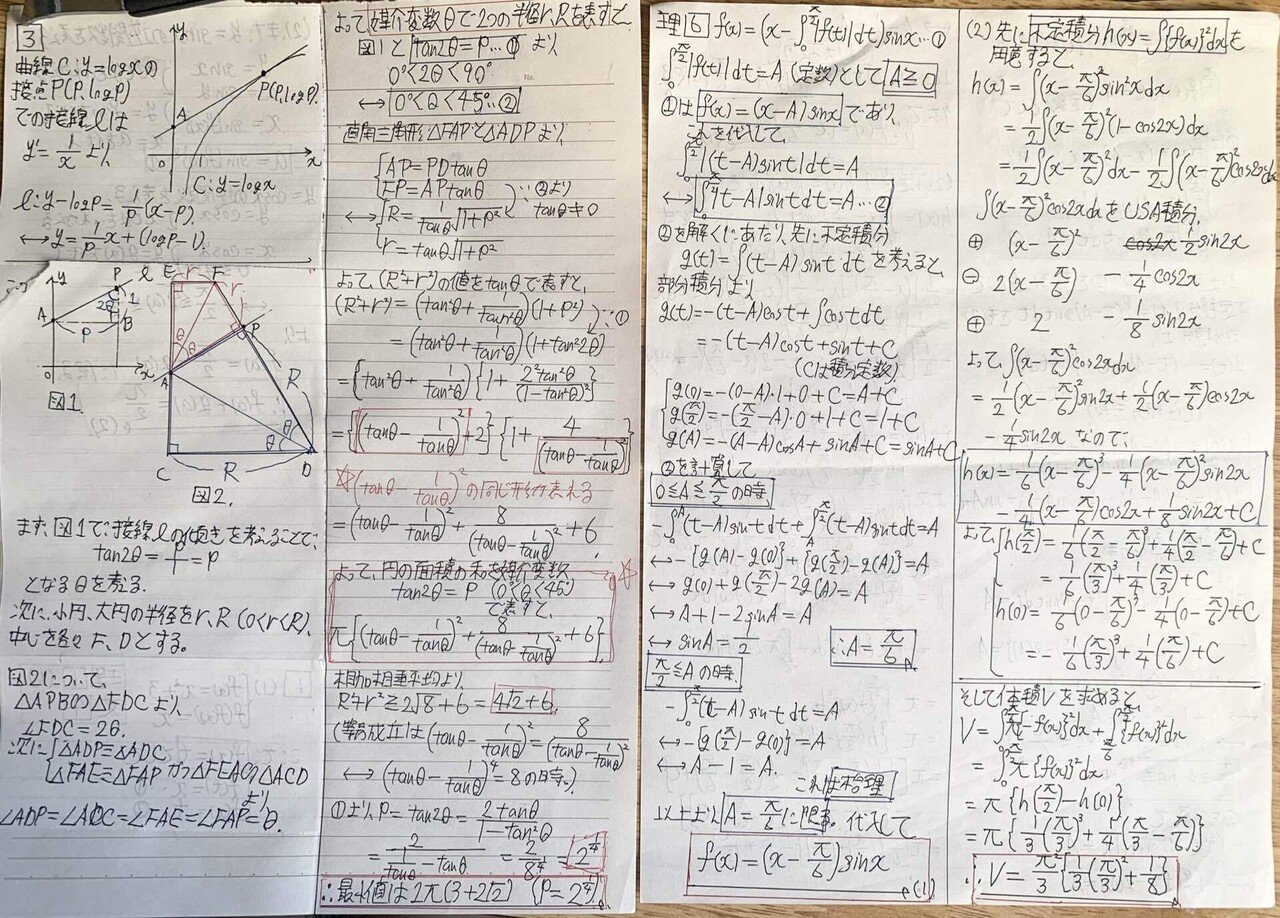 3
曲線C:y=logxの
接点P(P,logP)
での接線lは
y'=1/x より
l:y-logP=1/P(x-P).
↔y=1/P x+(logP-1).
y
P(P,logP)
A
0
1
x
C:y=logx
y
P
l
A
2θ
1
P
B
x
図1.
E
r
F
r
θ
θ
P
A
R
θ
θ
C
R
D
図2.
まず、図1で、接線lの傾きを考えることで、
tan2θ=P/1=P
となるθを考える.
次に、小円、大円の半径をr,R(0<r<R),
中心を各々F,Dとする。
図2について、
△APB∽△FDCより
∠FDC=2θ.
次に{△ADP≡△ADC
△FAE≡△FAP かつ△FEA∽△ACD
より
∠ADP=∠ADC=∠FAE=∠FAP=θ.
よって媒介変数θで2つの半径r,Rを表すと、
図1とtan2θ=P…① より
0°<2θ<90°
↔0°<θ<45°…②
直角三角形△FAPと△ADPより
{AP=PDtanθ
FP=APtanθ
∵②より
tanθ≠0
↔{R=1/tanθ √1+P²
r=tanθ√1+P²
よって、(R²+r²)の値をtanθで表すと、
(R²+r²)=(tan²θ+1/tan²θ)(1+P²)
∵①
=(tan²θ+1/tan²θ)(1+tan²2θ)
={tan²θ+1/tan²θ}{1+2²tan²θ/(1-tan²θ)²}
={(tanθ-1/tanθ)²+2}{1+4/(tanθ-1/tanθ)²}
☆(tanθ-1/tanθ)²の同じ形が表れる
=(tanθ-1/tanθ)²+8/(tanθ-1/tanθ)²+6
よって、円の面積の和を媒介変数
tan2θ=P (0°<θ<45°)
で表すと、
π{(tanθ-1/tanθ)²+8/(tanθ-1/tanθ)²+6}
相加相乗平均より
R²+r²≧2√8+6=4√2+6.
(等号成立は(tanθ-1/tanθ)²=8/(tanθ-1/tanθ)²
↔(tanθ-1/tanθ)⁴=8の時.)
①よりP=tan2θ=2tanθ/1-tan²θ
=2/(1/tanθ-tanθ)=2/8^(1/4)=2^(1/4)
∴最小値は2π(3+2√2) (P=2^(1/4))
理6 f(x)=(x-∫₀^(π/2)|f(t)|dt)sinx…①
∫₀^(π/2)|f(t)|dt=A(定数)としてA≧0
①はf(x)=(x-A)sinxであり
これを代入して、
∫₀^(π/2)|(t-A)sint|dt=A
↔∫₀^(π/2)|t-A|sintdt=A…②
②を解くにあたり、先に不定積分
g(t)=∫(t-A)sint dtを考えると、
部分積分より
g(t)=-(t-A)cost+∫costdt
=-(t-A)cost+sint+C
(Cは積分定数)
{g(0)=-(0-A)・1+0+C=A+C
g(π/2)=-(π/2-A)・0+1+C=1+C
g(A)=-(A-A)cosA+sinA+C=sinA+C
②を計算して
0≦A≦π/2の時
-∫₀^A(t-A)sintdt+∫_A^(π/2)(t-A)sintdt=A
↔-{g(A)-g(0)}+{g(π/2)-g(A)}=A
↔g(0)+g(π/2)-2g(A)=A
↔A+1-2sinA=A
↔sinA=1/2 ∴A=π/6
π/2≦Aの時
-∫₀^(π/2)(t-A)sintdt=A
↔-{g(π/2)-g(0)}=A
↔A-1=A.
これは不合理
以上よりA=π/6に限る。代入して
f(x)=(x-π/6)sinx
(1)
(2)先に不定積分h(x)=∫{f(x)}²dxを
用意すると、
h(x)=∫(x-π/6)²sin²xdx
=1/2∫(x-π/6)²(1-cos2x)dx
=1/2∫(x-π/6)²dx-1/2∫(x-π/6)²cos2xdx
∫(x-π/6)²cos2xdxをUSA積分.
⊕ (x-π/6)² cos2x 1/2sin2x
⊖ 2(x-π/6) -1/4cos2x
⊕ 2 -1/8sin2x
よって、∫(x-π/6)²cos2xdx
=1/2(x-π/6)²sin2x+1/2(x-π/6)cos2x
-1/4sin2x なので、
h(x)=1/6(x-π/6)³-1/4(x-π/6)²sin2x
-1/4(x-π/6)cos2x+1/8sin2x+C
よって{h(π/2)=1/6(π/2-π/6)³+1/4(π/2-π/6)+C
=1/6(π/3)³+1/4(π/3)+C
h(0)=1/6(0-π/6)³-1/4(0-π/6)+C
=-1/6(π/3)³+1/4(π/6)+C
そして体積Vを求めると、
V=∫₀^(π/6)π{-f(x)}²dx+∫_(π/6)^(π/2)π{f(x)}²dx
=∫₀^(π/2)π{f(x)}²dx
=π{h(π/2)-h(0)}
=π{1/3(π/3)³+1/4(π/3-π/6)}
∴V=π²/3{1/3(π/3)²+1/8}